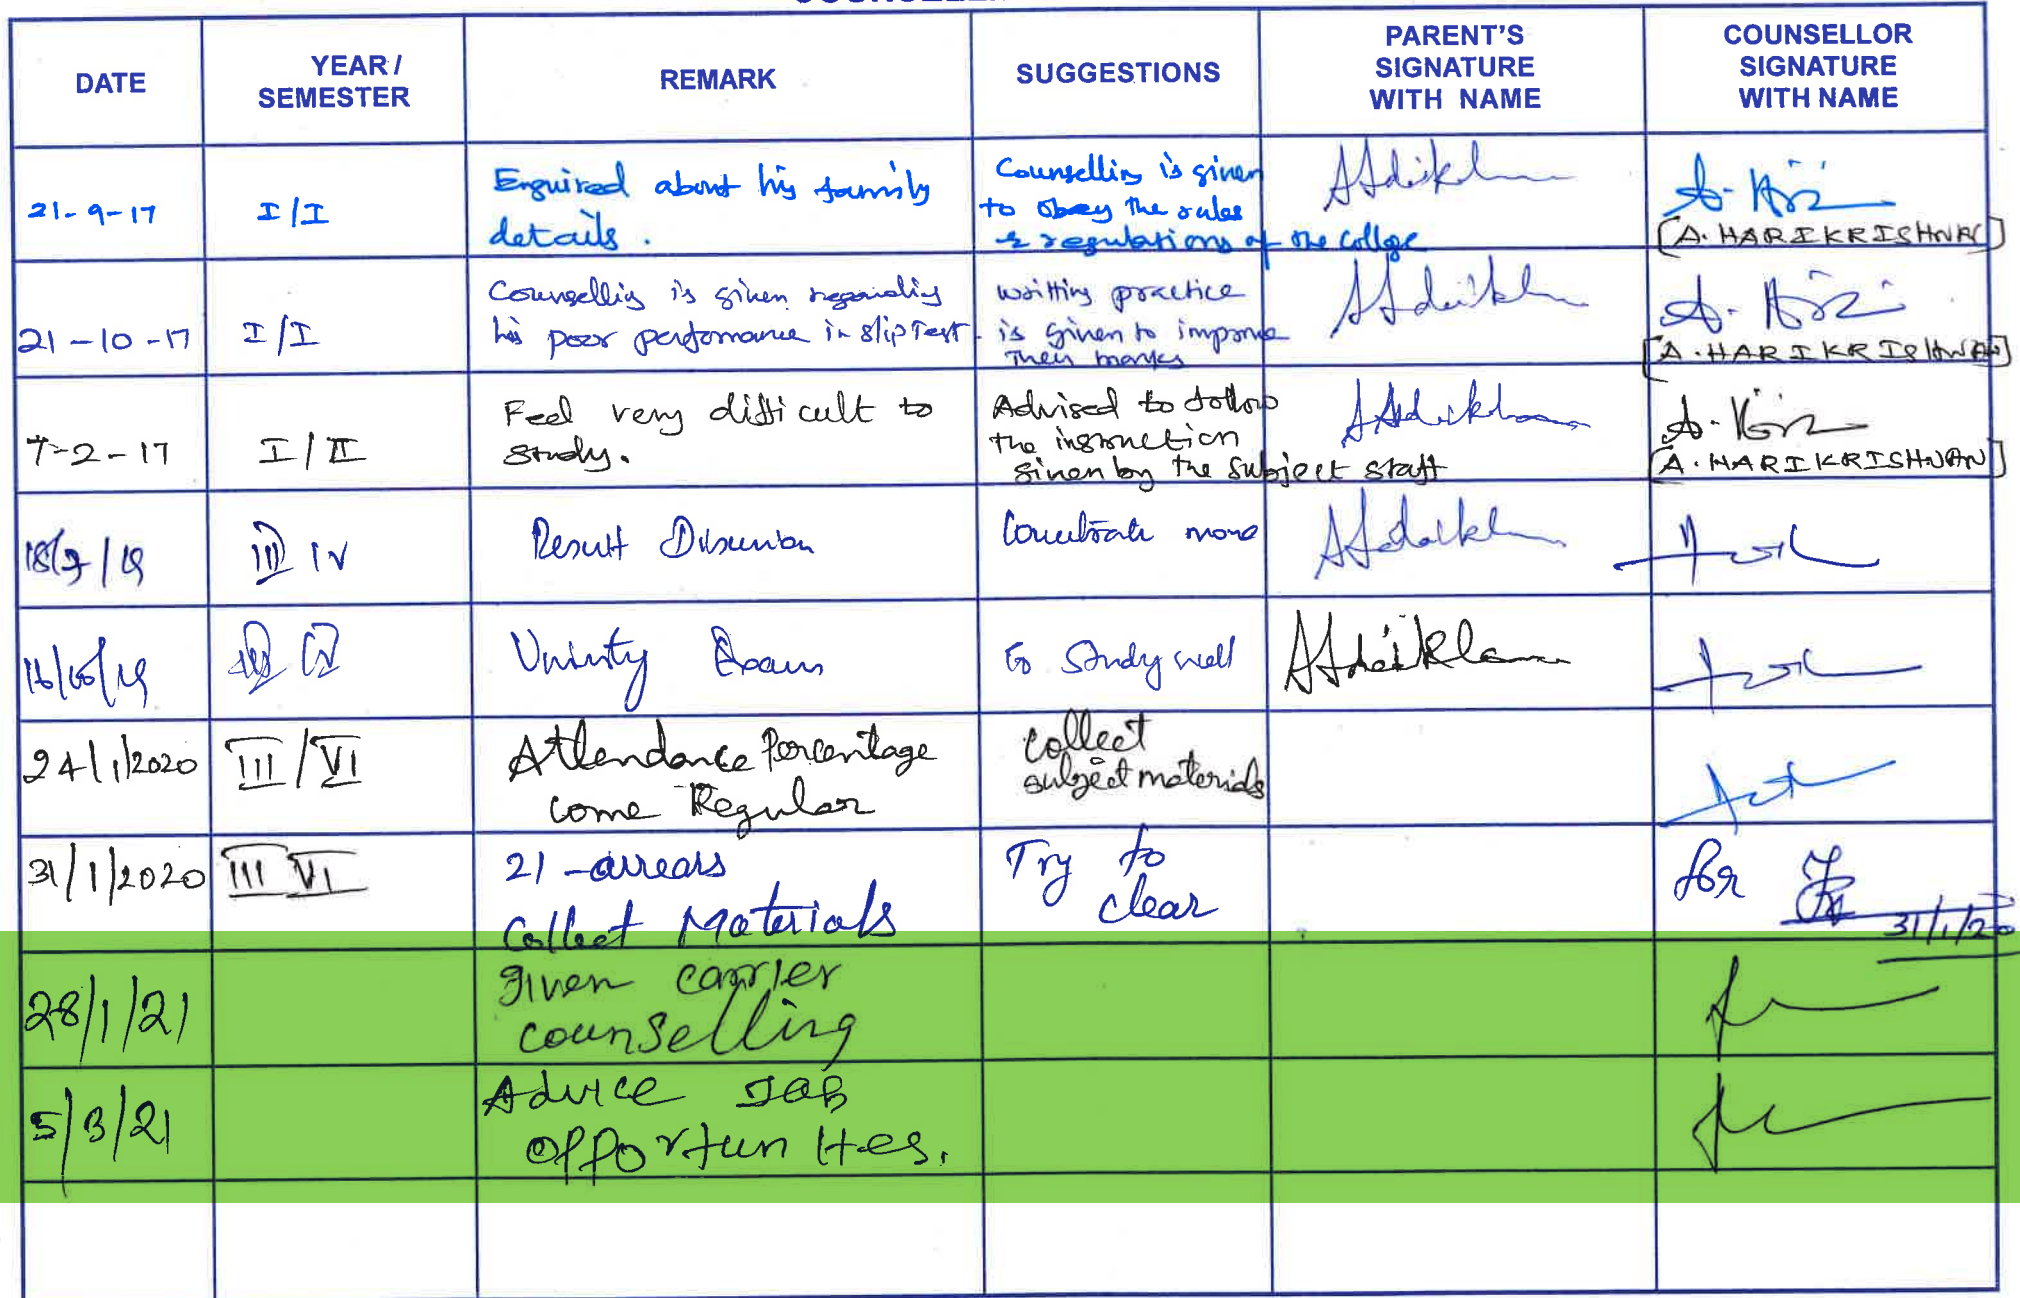 DATE
YEAR /
SEMESTER
REMARK
SUGGESTIONS
PARENT'S
SIGNATURE
WITH NAME
COUNSELLOR
SIGNATURE
WITH NAME
21-9-17
I/I
Enquired about his family
details.
Counselling is given
to obey the rules
& regulations of the College
A. Hari
[A. HARIKRISHNAN]
21-10-17
I/I
Counselling is given regarding
his poor performance in slip Test.
writting practice
is given to improve
their marks
A. Hari
[A. HARIKRISHNAN]
7-2-17
I/II
Feel very difficult to
study.
Advised to follow
the instruction
given by the subject staff
A. Hari
[A. HARIKRISHNAN]
III IV
Result Discussion
more
Exam
to Study well
24/1/2020
III/VI
Attendance Percentage
come Regular
collect
subject materials
31/1/2020
III VI
21-arrears
Collect Materials
Try to
clear
for
31/1/20
28/1/21
given carrier
counselling
5/3/21
Advice JOB
opportunities.